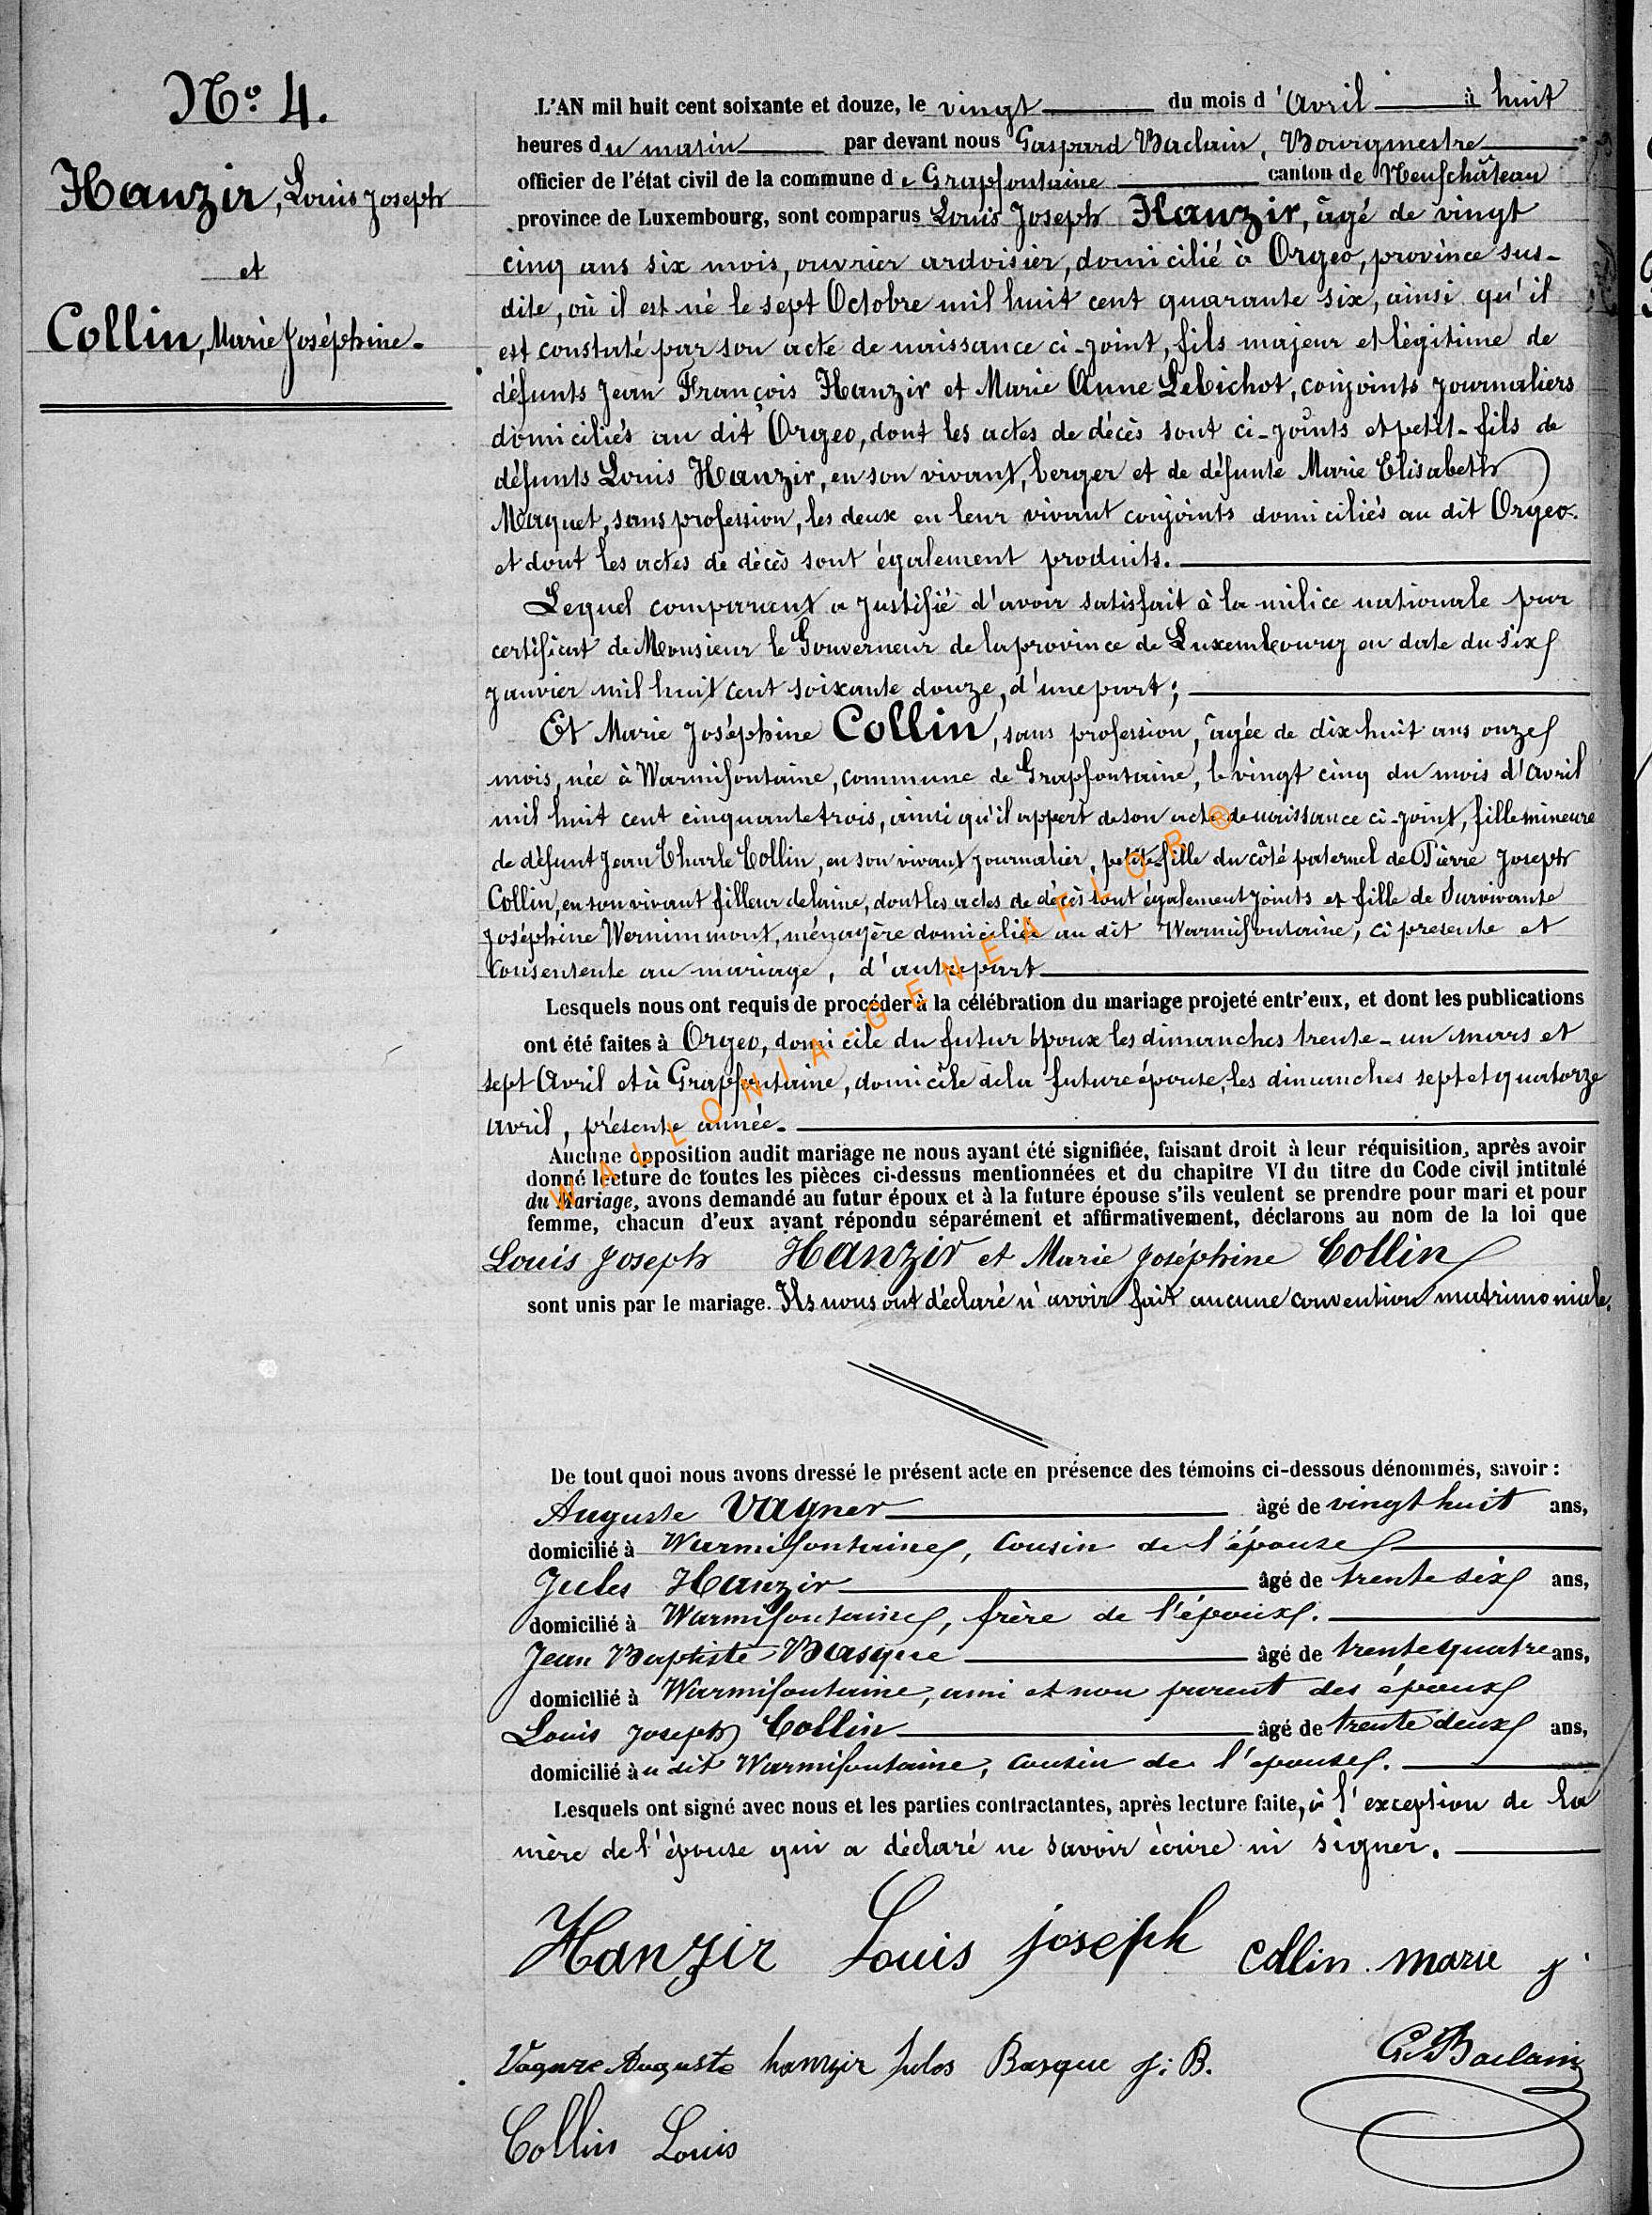 N° 4.
Hanzir, Louis Joseph
et
Collin, Marie Joséphine.
L'AN mil huit cent soixante et douze, le vingt du mois d'Avril à huit
heures du matin par devant nous Gaspard Baclain, Bourgmestre
officier de l'état civil de la commune de Grapfontaine canton de Neufchâteau
province de Luxembourg, sont comparus Louis Joseph Hanzir, âgé de vingt
cinq ans six mois, ouvrier ardoisier, domicilié à Orgeo, province sus-
dite, où il est né le sept Octobre mil huit cent quarante six, ainsi qu'il
est constaté par son acte de naissance ci-joint, fils majeur et légitime de
défunts Jean François Hanzir et Marie Anne Lebichot, conjoints journaliers
domiciliés au dit Orgeo, dont les actes de décès sont ci-joints et petit-fils de
défunts Louis Hanzir, en son vivant, berger et de défunte Marie Elisabeth
Maquet, sans profession, les deux en leur vivant conjoints domiciliés au dit Orgeo.
et dont les actes de décès sont également produits.
Lequel comparant a justifié d'avoir satisfait à la milice nationale par
certificat de Monsieur le Gouverneur de la province de Luxembourg en date du six
janvier mil huit cent soixante douze, d'une part;
Et Marie Joséphine Collin, sans profession, âgée de dix huit ans onze
mois, née à Warmifontaine, commune de Grapfontaine, le vingt cinq du mois d'avril
mil huit cent cinquante trois, ainsi qu'il appert de son acte de naissance ci-joint, fille mineure
de défunt Jean Charle Collin, en son vivant journalier, petite-fille du côté paternel de Pierre Joseph
Collin, en son vivant filleur de laine, dont les actes de décès sont également joints et fille de Survivante
Joséphine Wernimmont, ménagère domiciliée au dit Warmifontaine, ci presente et
Consentente au mariage, d'autre part
Lesquels nous ont requis de procéder à la célébration du mariage projeté entr'eux, et dont les publications
ont été faites à Orgeo, domicile du futur époux les dimanches trente-un mars et
sept Avril et à Grapfontaine, domicile de la future épouse, les dimanches sept et quatorze
avril, présente année.
Aucune opposition audit mariage ne nous ayant été signifiée, faisant droit à leur réquisition, après avoir
donné lecture de toutes les pièces ci-dessus mentionnées et du chapitre VI du titre du Code civil intitulé
du Mariage, avons demandé au futur époux et à la future épouse s'ils veulent se prendre pour mari et pour
femme, chacun d'eux ayant répondu séparément et affirmativement, déclarons au nom de la loi que
Louis Joseph Hanzir et Marie Joséphine Collin
sont unis par le mariage. Ils nous ont déclaré n'avoir fait aucune convention matrimoniale.
De tout quoi nous avons dressé le présent acte en présence des témoins ci-dessous dénommés, savoir :
Auguste Vagner âgé de vingt huit ans,
domicilié à Warmifontaine, Cousin de l'épouse
Jules Hanzir âgé de trente six ans,
domicilié à Warmifontaine, frère de l'époux.
Jean Baptiste Basque âgé de trente quatre ans,
domicilié à Warmifontaine, ami et non parent des époux
Louis Joseph Collin âgé de trente deux ans,
domicilié au dit Warmifontaine, Cousin de l'épouse.
Lesquels ont signé avec nous et les parties contractantes, après lecture faite, à l'exception de la
mère de l'épouse qui a déclaré ne savoir écrire ni signer.
Hanzir Louis joseph Collin marie j
Vagnre Auguste hanzir jules Basque J: B. G. Baclain
Collin Louis
WALLONIA-GENEAFLOR®